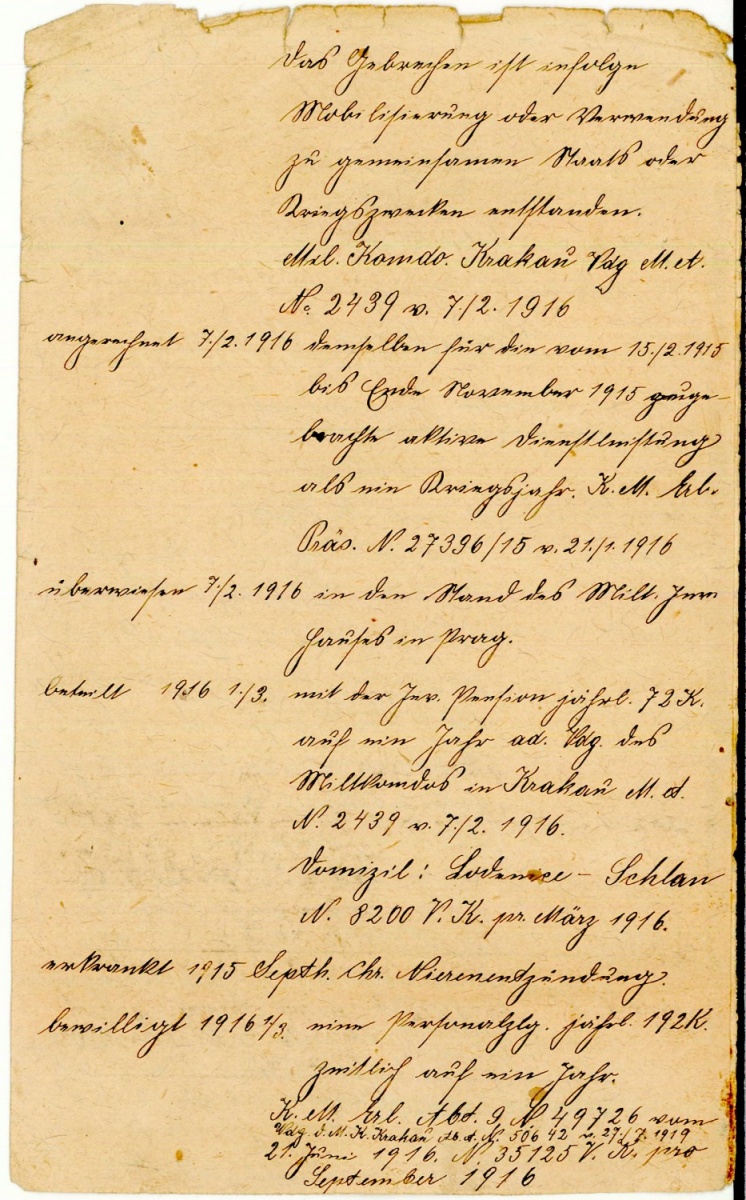 Das Gebrechen ist infolge
Mobilisierung oder Verwendung
zu gemeinsamen Staats oder
Kriegszwecken entstanden.
Mil. Komdo. Krakau Vdg M.A.
No 2439 v. 7./2. 1916
angerechnet 7./2. 1916 demselben für die vom 15./2. 1915
bis Ende November 1915
brachte aktive Dienstleistung
als ein Kriegsjahr. K.M. Erl.
Präs. N. 27396/15 v. 21./1. 1916
überwiesen 7./2. 1916 in den Stand des Milt. Inv.
hauses in Prag.
beteilt 1916 1./3. mit der Inv. Pension jährl. 72 K.
auf ein Jahr ad. Vdg. des
Miltkomdos in Krakau M.A.
N. 2439 v. 7./2. 1916.
Domizil: Lodenice – Schlan
N. 8200 V. K. pr. März 1916.
erkrankt 1915 Septb. Chr. Nierenentzündung.
bewilligt 1916 1/3. eine Personalzlg. jährl. 192 K.
zeitlich auf ein Jahr.
K. M. Erl. Abt. 9 N 49726 vom
Vdg. d. M. K. Krakau N. 50642 v. 27./7. 1919
21. Juni 1916. N. 35125 V. K. pro
September 1916